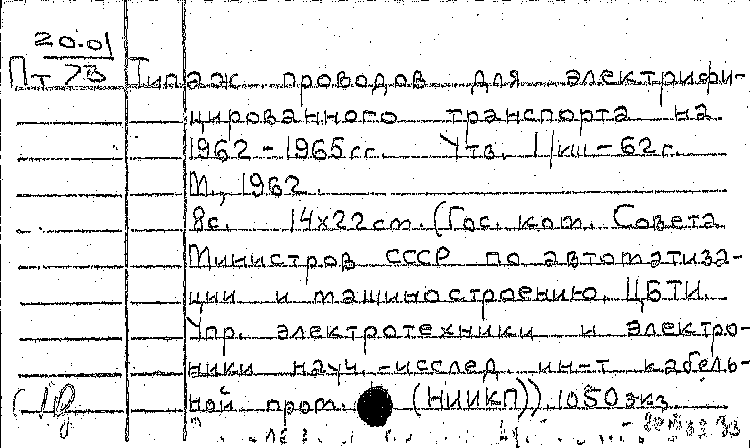 20.01
Пт 73 Типаж проводов для электрифи-
цированного транспорта на
1962-1965гг. Утв. 1/VIII-62г.
М., 1962.
8с. 14х22см. (Гос. ком. Совета
Министров СССР по автоматиза-
ции и машиностроению. ЦБТИ.
Упр. электротехники и электро-
ники науч.-исслед. ин-т кабель-
ной пром. (НИИКП)). 1050экз.